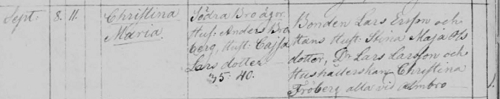 Sept. 8. 11. Christina Södra Bro ägor Bonden Lars Ersson och
Maria Husf. Anders Bro hans hust. Stina Maja Ols
berg, hust. Cajsa dotter, Dr. Lars Larsson och
Lars dotter Hushållerskan Christina
35. 40. Broberg alla vid Almbro